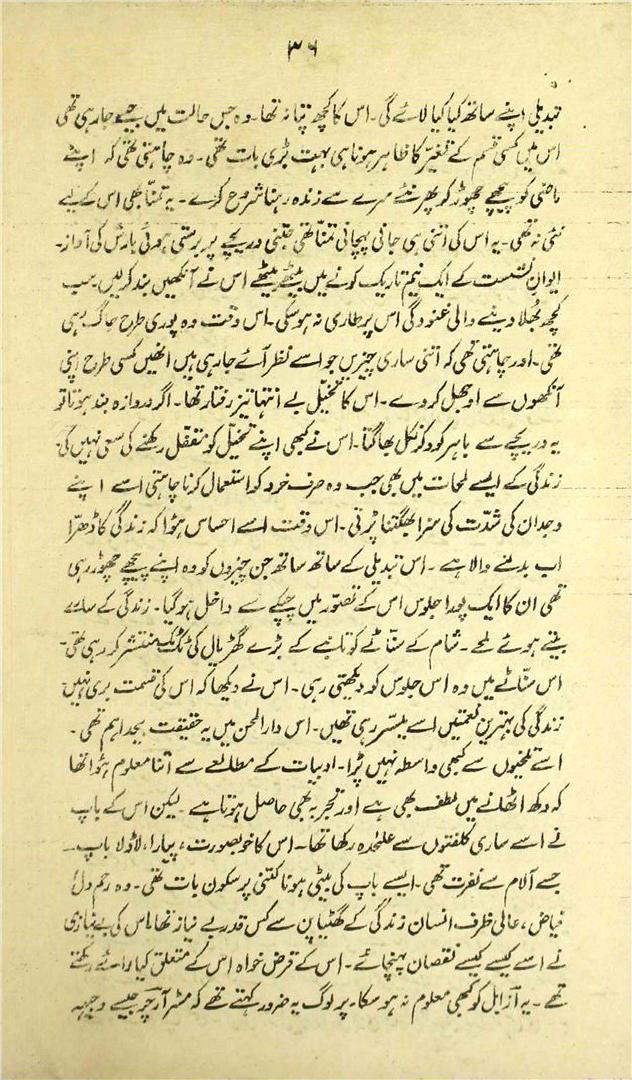 ۳۶
تبدیلی اپنے ساتھ کیا کیا لائے گی۔ اس کا کچھ پتا نہ تھا۔ وہ جس حالت میں جیے جا رہی تھی
اس میں کسی قسم کے تغیّر کا ظاہر ہونا ہی بہت بڑی بات تھی۔ وہ چاہتی تھی کہ اپنے
ماضی کو پیچھے چھوڑ کر پھر نئے سرے سے زندہ رہنا شروع کرے۔ یہ تمنّا بھی اس کے لیے
نئی نہ تھی۔ یہ اس کی اتنی ہی جانی پہچانی تمنّا تھی جتنی دریچے پر برستی ہوئی بارش کی آواز۔
ایوانِ نشست کے ایک نیم تاریک کونے میں بیٹھے بیٹھے اس نے آنکھیں بند کر لیں۔ سب
کچھ بھلا دینے والی غنودگی اس پر طاری نہ ہو سکی۔ اس وقت وہ پوری طرح جاگ رہی
تھی۔ اور چاہتی تھی کہ اتنی ساری چیزیں جو اسے نظر آئے جا رہی ہیں انھیں کسی طرح اپنی
آنکھوں سے اوجھل کر دے۔ اس کا تخیّل بے انتہا تیز رفتار تھا۔ اگر دروازہ بند ہوتا تو
یہ دریچے سے باہر کود کر نکل بھاگتا۔ اس نے کبھی اپنے تخیّل کو مقفل رکھنے کی سعی نہیں کی
زندگی کے ایسے لمحات میں بھی جب وہ صرف خرد کو استعمال کرنا چاہتی اسے اپنے
وجدان کی شدّت کی سزا بھگتنا پڑتی۔ اس وقت اسے احساس ہوا کہ زندگی کا ڈھرّا
اب بدلنے والا ہے۔ اس تبدیلی کے ساتھ ساتھ جن چیزوں کو وہ اپنے پیچھے چھوڑ رہی
تھی ان کا ایک پورا جلوس اس کے تصوّر میں چپکے سے داخل ہو گیا۔ زندگی کے سارے
بیتے ہوئے لمحے۔ شام کے سنّاٹے کو تانبے کے بڑے گھڑیال کی ٹک ٹک منتشر کر رہی تھی۔
اس سنّاٹے میں وہ اس جلوس کو دیکھتی رہی۔ اس نے دیکھا کہ اس کی قسمت بری نہیں
زندگی کی بہترین نعمتیں اسے میسّر رہی تھیں۔ اس دارالمحن میں یہ حقیقت بیحد اہم تھی۔
اسے تلخیوں سے کبھی واسطہ نہیں پڑا۔ ادبیات کے مطالعے سے اتنا معلوم ہوا تھا
کہ دکھ اٹھانے میں لطف بھی ہے اور تجربہ بھی حاصل ہوتا ہے۔ لیکن اس کے باپ
نے اسے ساری کلفتوں سے علٰحدہ رکھا تھا۔ اس کا خوبصورت، پیارا، لاڈلا باپ۔
جسے آلام سے نفرت تھی۔ ایسے باپ کی بیٹی ہونا کتنی پرسکون بات تھی۔ وہ رحم دل،
فیاض، عالی ظرف انسان زندگی کے گھٹیا پن سے کس قدر بے نیاز تھا۔ اس کی بے نیازی
نے اسے کیسے کیسے نقصان پہنچائے۔ اس کے قرض خواہ اس کے متعلق کیا رائے رکھتے
تھے۔ یہ آزابل کو کبھی معلوم نہ ہو سکا۔ پر لوگ یہ ضرور کہتے تھے کہ مسٹر آرچر جیسے وجیہہ